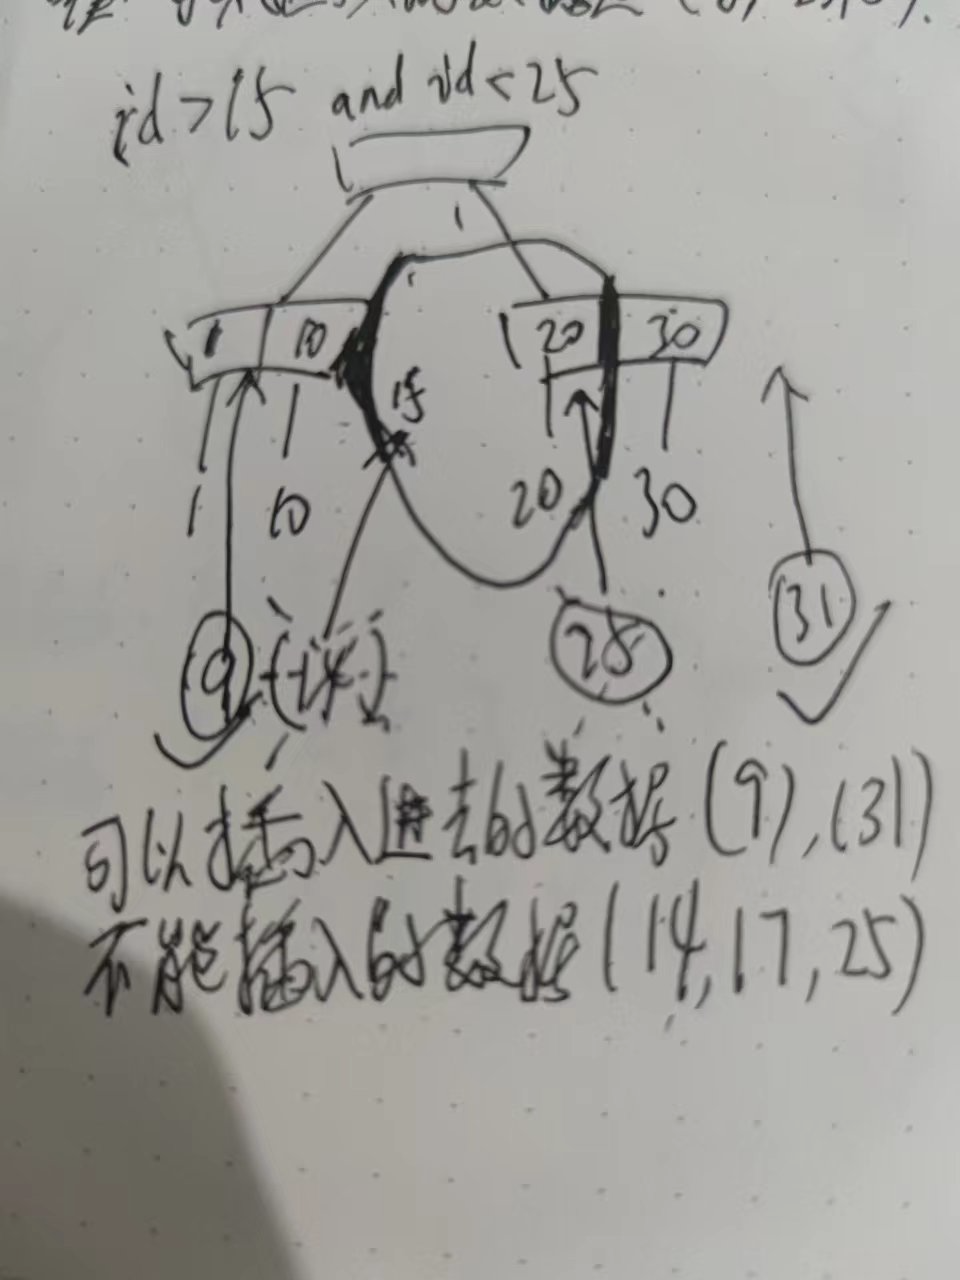 id>15 and id<25
1 10 20 30
15
1 10 20 30
9 (14) 25 31
可以插入进去的数据(9),(31)
不能插入的数据(14,17,25)